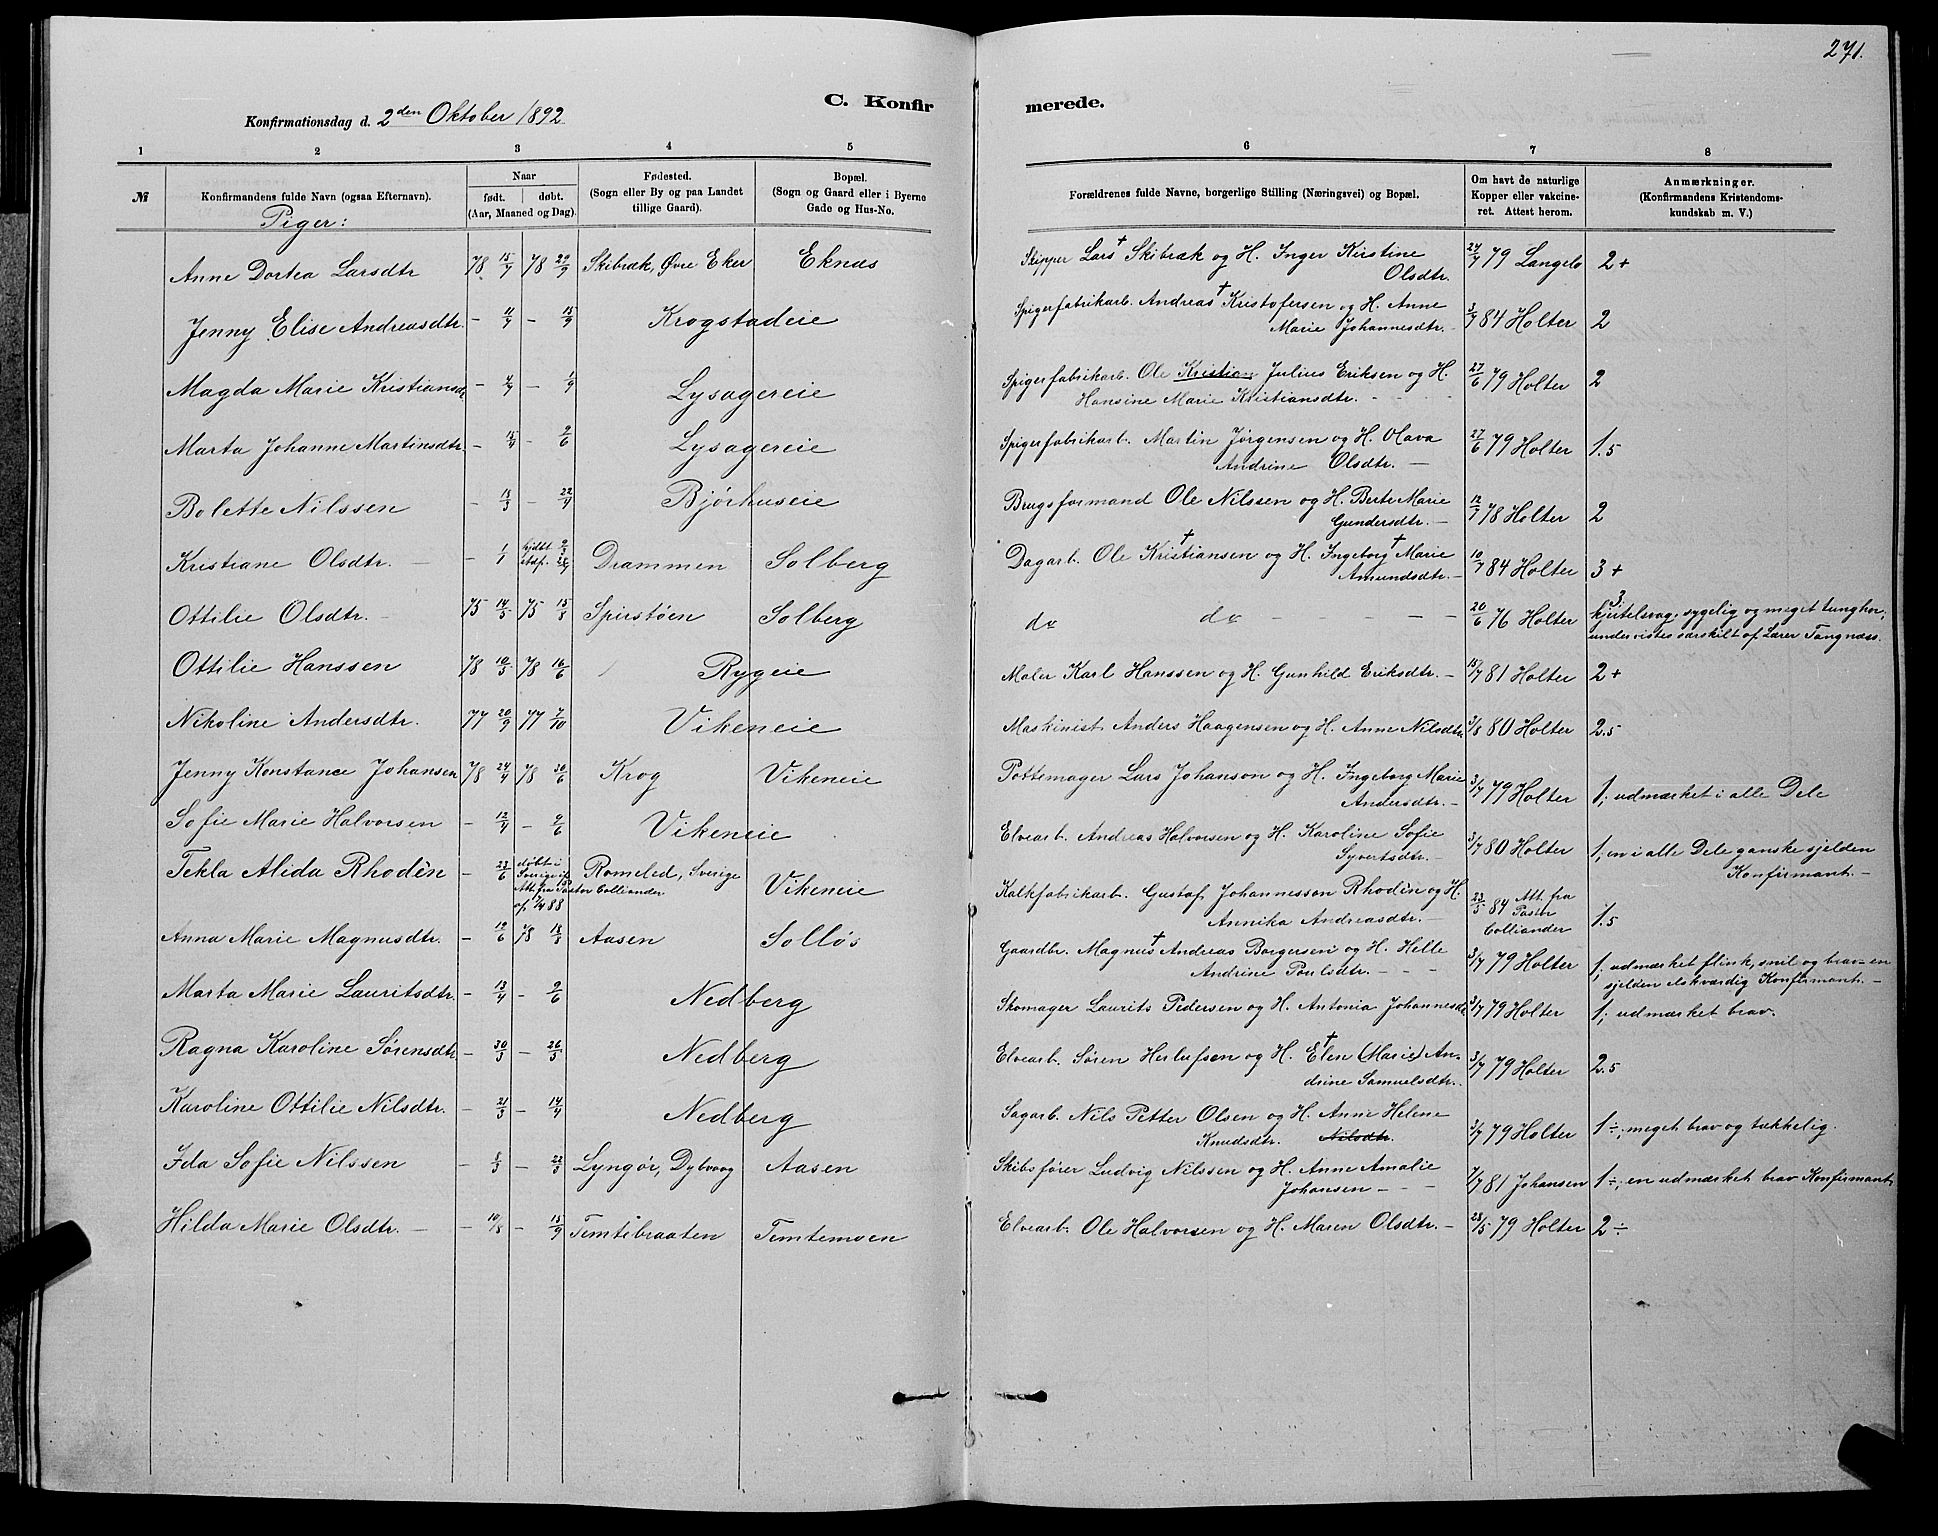 271.
C. Konfir merede.
Konfirmationsdag d. 2den Oktober 1892
1 2 3 4 5 6 7 8
№ Konfirmandens fulde Navn (ogsaa Efternavn). Naar født. døbt. (Aar, Maaned og Dag). Fødested. (Sogn eller By og paa Landet tillige Gaard). Bopæl. (Sogn og Gaard eller i Byerne Gade og Hus-No. Forældrenes fulde Navne, borgerlige Stilling (Næringsvei) og Bopæl. Om havt de naturlige Kopper eller vakcineret. Attest herom. Anmærkninger. (Konfirmandens Kristendomskundskab m. V.)
Piger:
Anne Dortea Larsdtr 78 15/7 78 29/9 Skibrak, Øvre Eker Eknæs Skipper Lars † Skibrak og H. Inger Kirstine Olsdtr. 24/7 79 Langelo 2+
Jenny Elise Andreasdtr. – 11/7 – 15/9 Krogstadeie Spigerfabrikarb. Andreas † Kristofersen og H. Anne Marie Johannesdtr. 3/7 84 Holter 2
Magda Marie Kristiansd – 4/7 – 1/9 Lysagereie Spigerfabrikarb. Ole Kristian Julius Eriksen og H. Hansine Marie Kristiansdtr. 27/6 79 Holter 2
Marta Johanne Martinsdtr. – 15/4 – 9/6 Lysagereie Spigerfabrikarb. Martin Jørgensen og H. Olava Andrine Olsdtr. 27/6 79 Holter 1.5
Bolette Nilssen – 13/3 – 22/4 Bjørhuseie Brugsformand Ole Nilssen og H. Berte Marie Gundersdtr. 12/7 78 Holter 2
Kristiane Olsdtr. – 1/1 hjdbt 9/3 stadf. Drammen Solberg Dagarb. Ole Kristiansen † og H. Ingeborg † Marie Amundsdtr. 10/7 84 Holter 3+
Ottilie Olsdtr. 75 14/5 75 15/8 Spirstøen Solberg do do 20/6 76 Holter 3 kjirtelsvag, sygelig og meget tunghør, undervistes særskilt af Lærer Tangnæs.
Ottilie Hanssen 78 10/5 78 16/6 Rygeie Maler Karl Hanssen og H. Gunhild Eriksdtr. 15/7 81 Holter 2+
Nikoline Andersdtr. 77 20/9 77 7/10 Vikeneie Maskinist Anders Haagensen og H. Anne Nilsdtr 3/8 80 Holter 2.5
Jenny Konstance Johansen 78 24/4 78 30/6 Krog Vikeneie Pottemager Lars Johanson og H. Ingeborg Marie Andersdtr. 3/7 79 Holter 1; udmærket i alle Dele
Sofie Marie Halvorsen – 12/4 – 9/6 Vikeneie Elvearb. Andreas Halvorsen og H. Karoline Sofie Syvertsdtr. 3/7 80 Holter 1; en i alle Dele ganske sjelden Konfirmant.
Tekla Alida Rhodèn – 23/6 døbt i Sverige Att. fra Pastor Colliander af 7/4 88 Romeled, Sverige Vikeneie Kalkfabrikarb. Gustaf Johannessen Rhodin og H. Annika Andreasdtr. 23/5 84 Att. fra Pastor Colliander 1.5
Anna Marie Magnusdtr. – 12/6 78 18/8 Aasen Solløs Gaardbr. Magnus † Andreas Borgersen og H. Helle Andrine Poulsdtr. 3/7 79 Holter 1; udmærket flink, snil og brav – en sjelden elskværdig Konfirmant.
Marta Marie Lauritsdtr. – 13/4 – 9/6 Nedberg Skomager Laurits Pedersen og H. Antonia Johannesdtr 3/7 79 Holter 1; udmærket brav.
Ragna Karoline Sørensdtr – 30/3 – 26/5 Nedberg Elvearb. Søren Herlufsen og H. Elen † (Marie) Andrine Samuelsdtr. 3/7 79 Holter 2.5
Karoline Ottilie Nilsdtr. – 21/3 – 14/4 Nedberg Sagarb. Nils Petter Olsen og H. Anne Helene Knudsdtr. Nilsdtr. 3/7 79 Holter 1÷; meget brav og tækkelig.
Ida Sofie Nilssen – 8/3 – 22/3 Lyngør, Dybvaag Aasen Skibsfører Ludvig Nilssen og H. Anne Amalie Johansen 7/7 81 Johansen 1÷; en udmærket brav Konfirmant
Hilda Marie Olsdtr. – 10/8 – 15/9 Temtebraaten Temtemoen Elvearb. Ole Halvorsen og H. Maren Olsdtr. 28/5 79 Holter 2÷